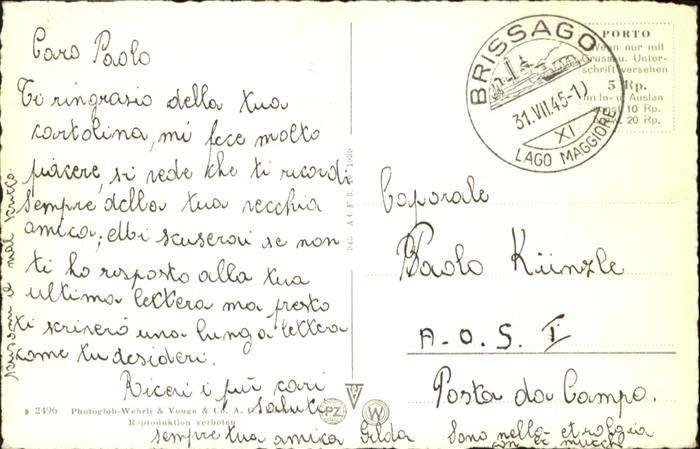 Caro Paolo
Ti ringrasio della tua
cartolina, mi fece molto
piacere, si vede che ti ricordi
sempre della tua vecchia
amica; scuserai se non
ti ho risposto alla tua
ultima lettera ma presto
ti scriverò una lunga lettera
come tu desideri.
Ricevi i più cari
saluti
sempre tua amica Gilda
Sono nella
BRISSAGO
31.VII.45-1
XI
LAGO MAGGIORE
PORTO
Wenn nur mit
Grussen u. Unter-
schrift versehen
5 Rp.
im In- u Auslan
sonst 10 Rp.
20 Rp.
Caporale
Paolo Künzle
A.O.S. I
Posta da Campo.
2496 Photoglob-Wehrli & Vouga & Co. A.
Reproduktion verboten
PZ
W